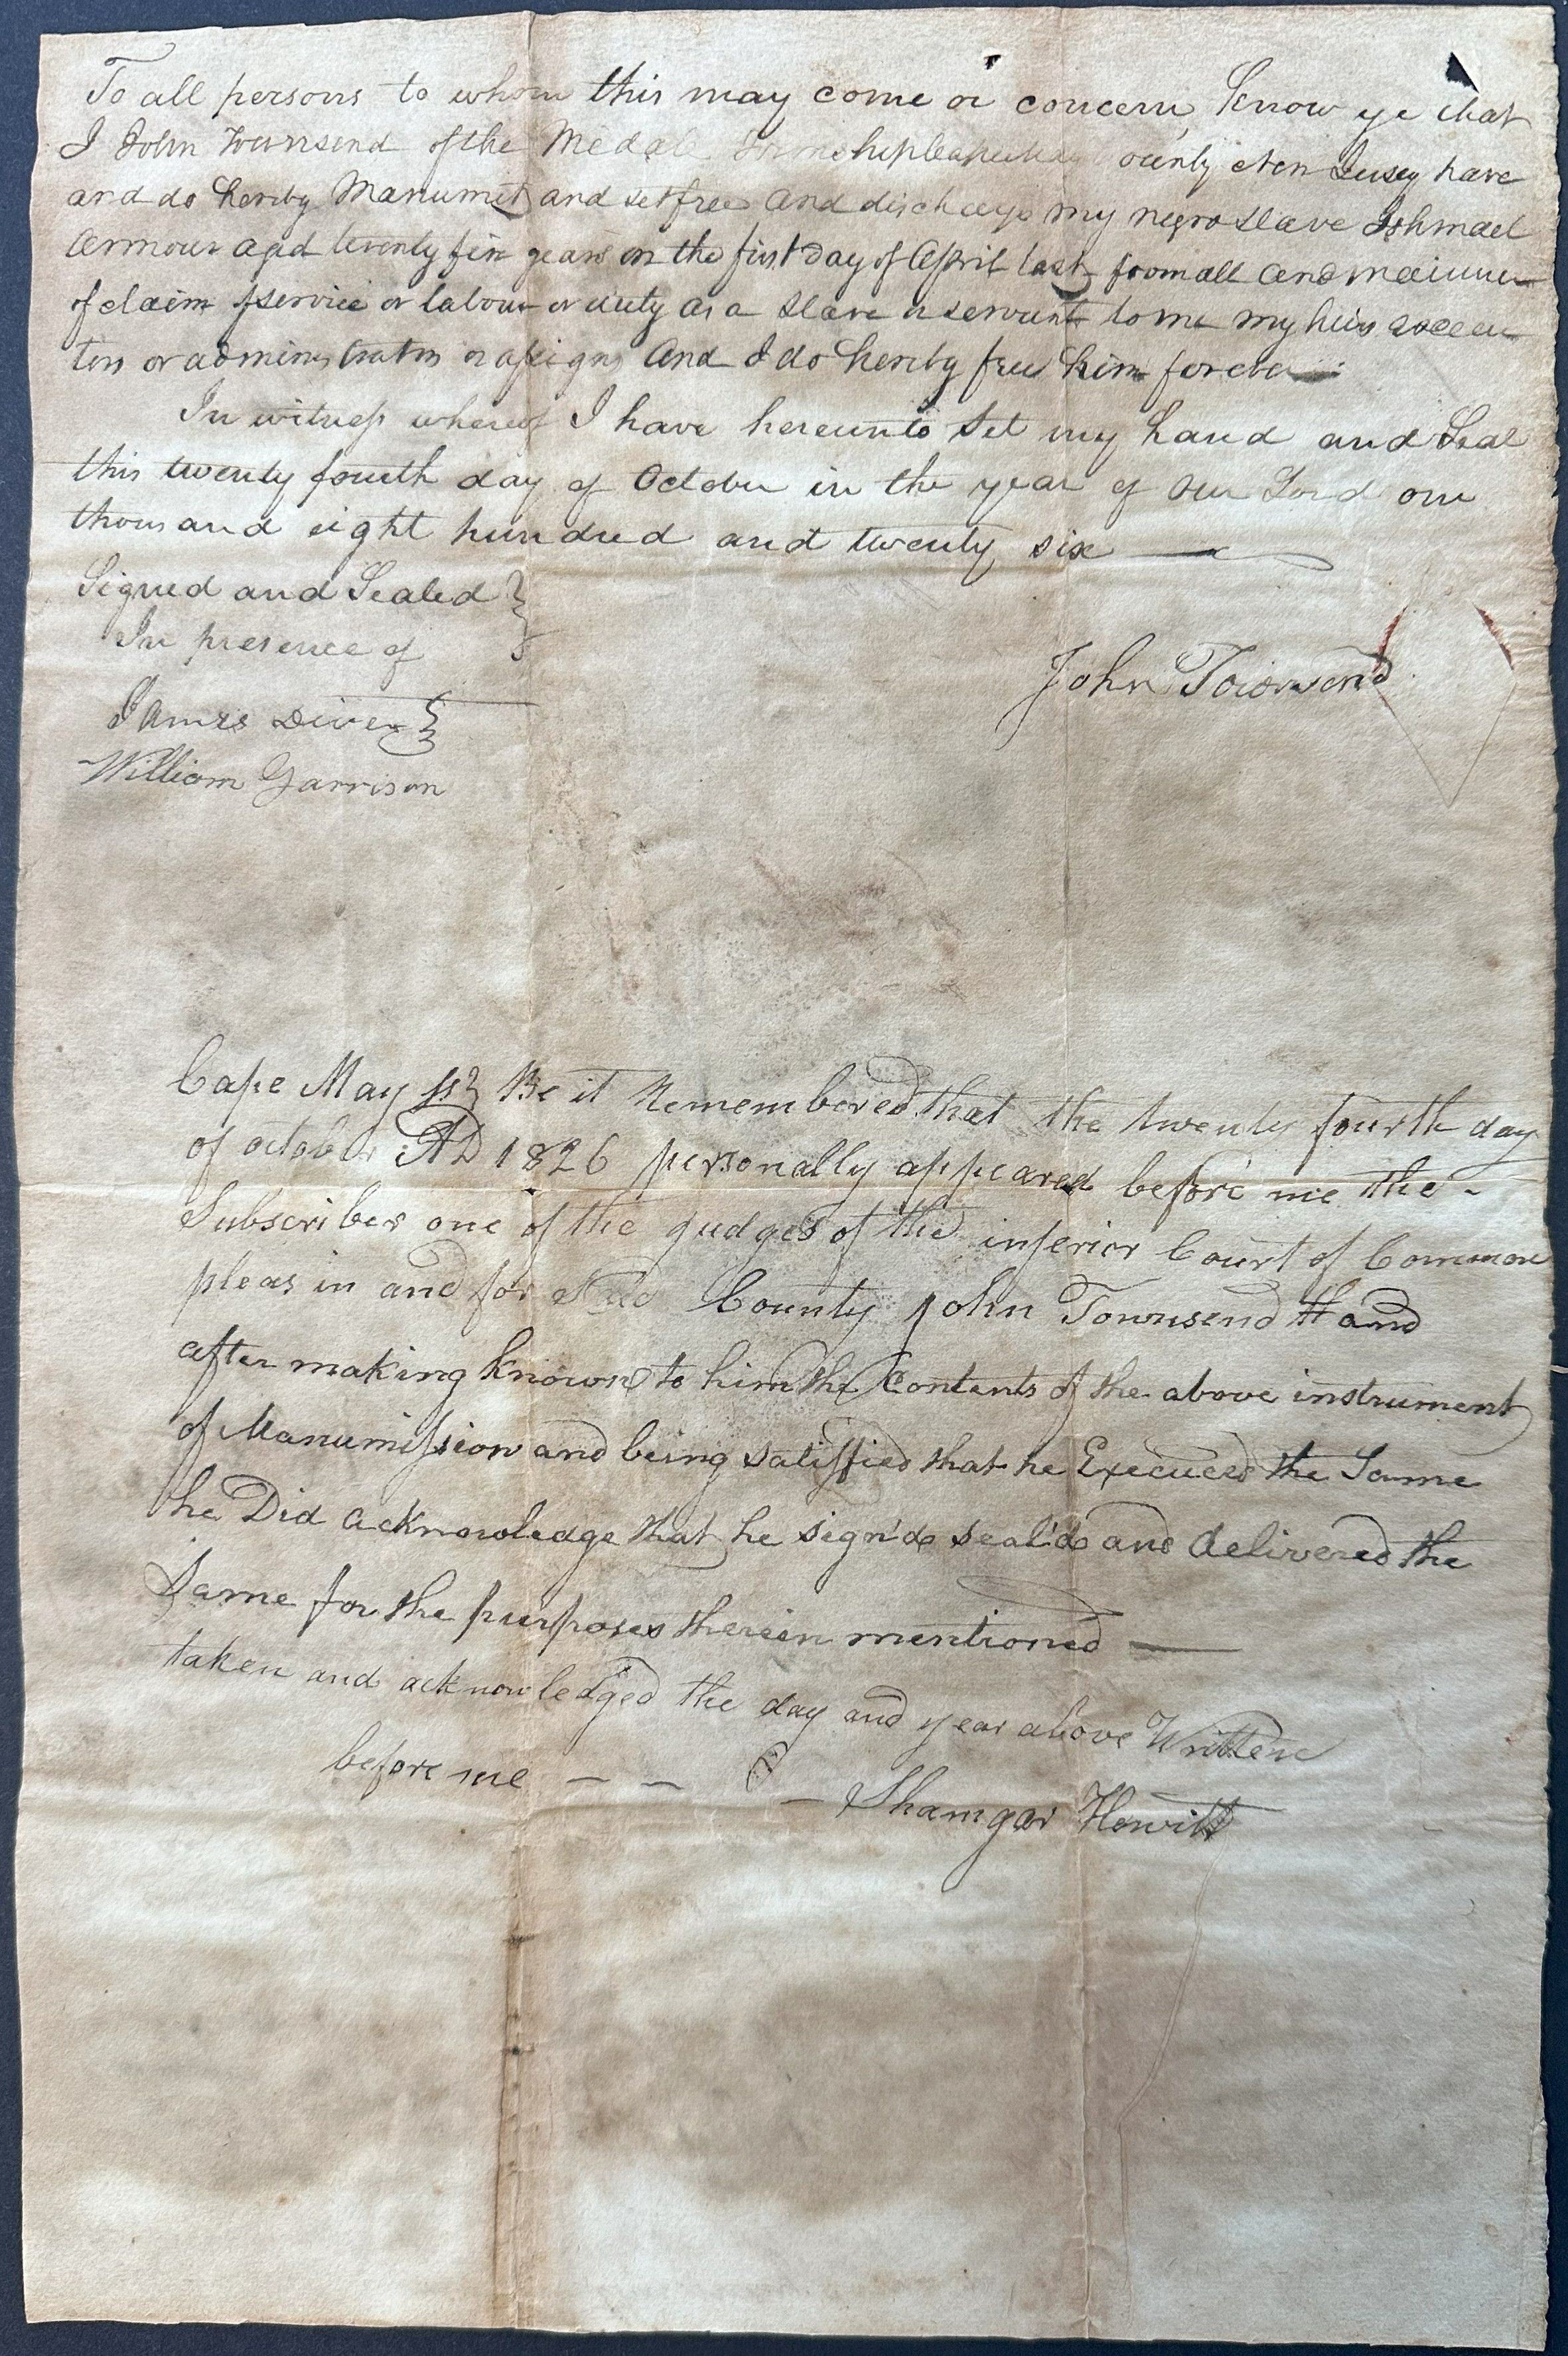 To all persons to whom this may come or concern, Know ye that
I John Townsend of the Medale Township Capemay County New Jersey have
and do hereby Manumit and set free and discharge my negro slave Ishmael
Armour aged twenty five years on the first day of April last from all and
of claim of service or labour or duty as a slave or servant to me my heirs execu
tors or administrators or assigns And I do hereby free him forever
In witness whereof I have hereunto Set my hand and Seal
this twenty fourth day of October in the year of our Lord one
thousand eight hundred and twenty six
Signed and Sealed }
In presence of
John Townsend
James Diver }
William Garrison
Cape May ss } Be it Remembered that the twenty fourth day
of october AD 1826 personally appeared before me the
Subscriber one of the judges of the inferior Court of Common
pleas in and for Said County John Townsend and
after making known to him the Contents of the above instrument
of Manumission and being satisfied that he Executed the Same
he Did acknowledge that he sign'd seal'd and delivered the
Same for the purposes therein mentioned
taken and acknowledged the day and year above Written
before me — — — Shamgar Hewitt